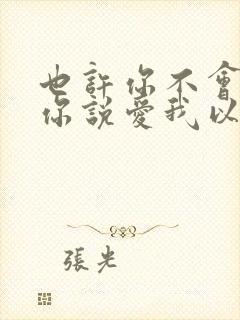 也許你不會
你說愛我以
張光